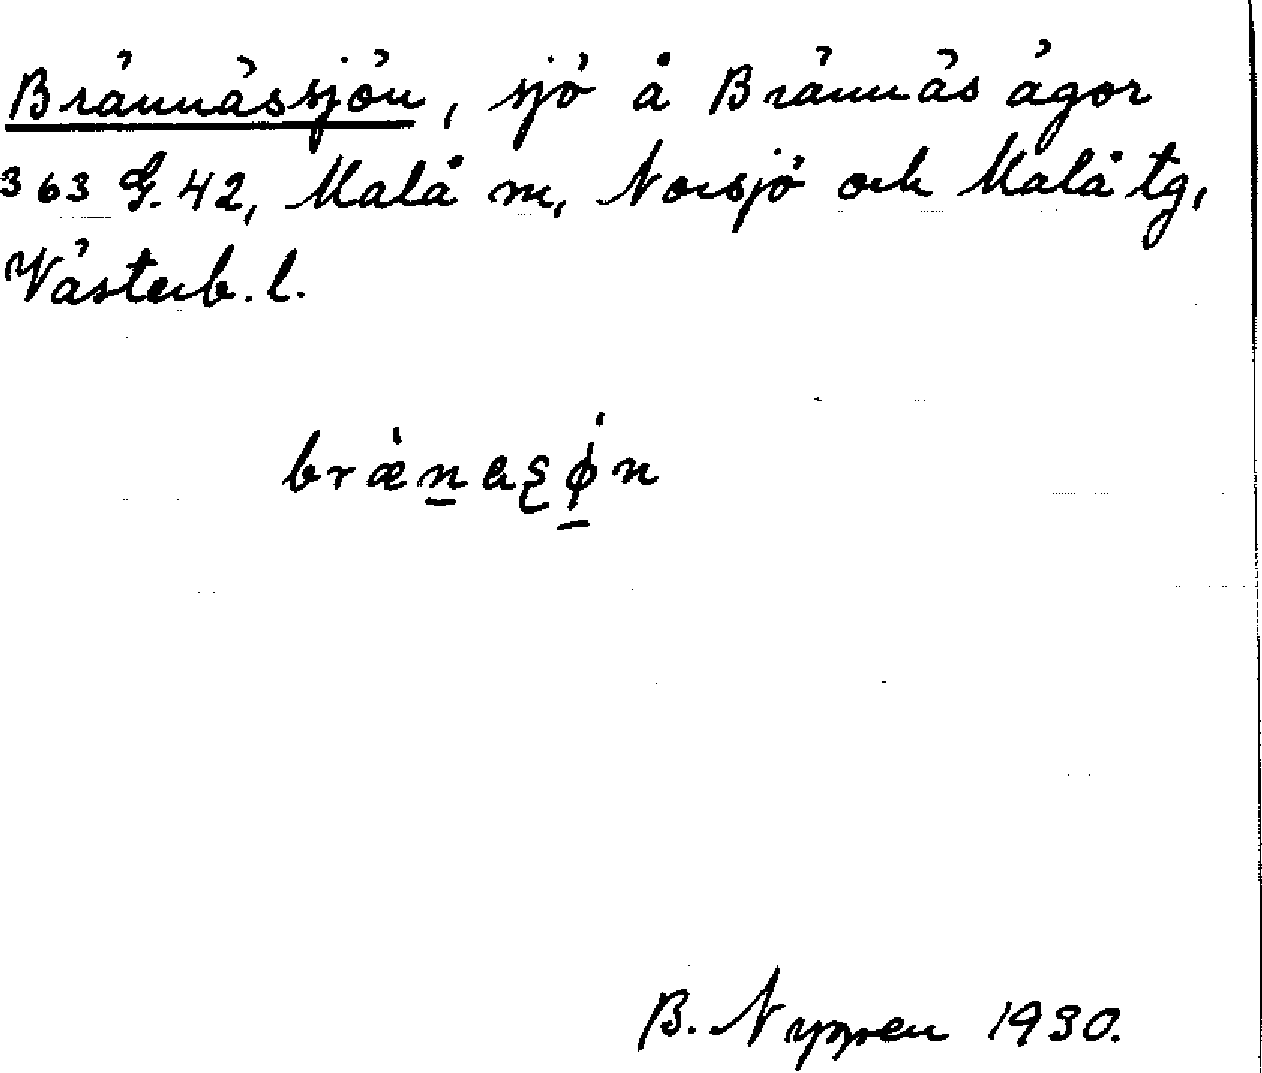 Brännässjön, sjö å Brännäs ägor
363 G. 42, Malå m, Norsjö och Malå tg,
Västerb. l.
B. Nygren 1930.